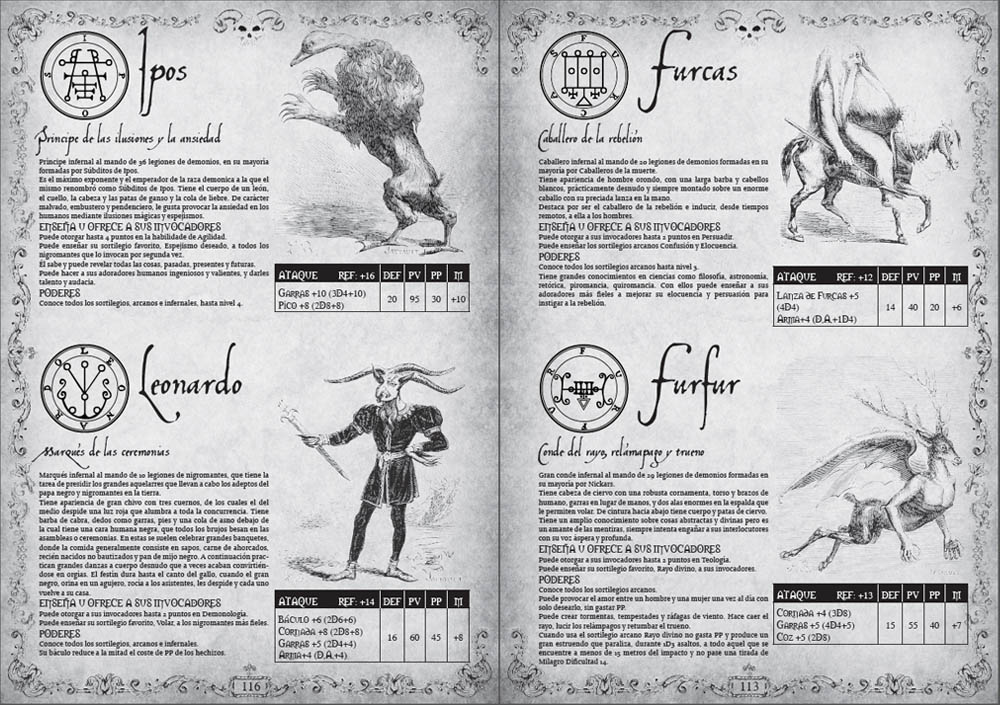 Ipos
Príncipe de las ilusiones y la ansiedad
Príncipe infernal al mando de 36 legiones de demonios, en su mayoría
formadas por Súbditos de Ipos.
Es el máximo exponente y el emperador de la raza demoniaca a la que el
mismo renombró como Súbditos de Ipos. Tiene el cuerpo de un león,
el cuello, la cabeza y las patas de ganso y la cola de liebre. De carácter
malvado, embustero y pendenciero, le gusta provocar la ansiedad en los
humanos mediante ilusiones mágicas y espejismos.
ENSEÑA U OFRECE A SUS INVOCADORES
Puede otorgar hasta 4 puntos en la habilidade de Agilidad.
Puede enseñar su sortilegio favorito, Espejismo deseado, a todos los
nigromantes que lo invocan por segunda vez.
Él sabe y puede revelar todas las cosas, pasadas, presentes y futuras.
Puede hacer a sus adoradores humanos ingeniosos y valientes, y darles
talento y audacia.
PODERES
Conoce todos los sortilegios, arcanos e infernales, hasta nivel 4.
ATAQUE REF: +16 DEF PV PP M
GARRAS +10 (3D4+10)
PICO +8 (2D8+8)
20 95 30 +10
Leonardo
Marqués de las ceremonias
Marqués infernal al mando de 10 legiones de nigromantes, que tiene la
tarea de presidir los grandes aquelarres que llevan a cabo los adeptos del
papa negro y nigromantes en la tierra.
Tiene apariencia de gran chivo con tres cuernos, de los cuales el del
medio despide una luz roja que alumbra a toda la concurrencia. Tiene
barba de cabra, dedos como garras, pies y una cola de asno debajo de
la cual tiene una cara humana negra, que todos los brujos besan en las
asambleas o ceremonias. En estas se suelen celebrar grandes banquetes,
donde la comida generalmente consiste en sapos, carne de ahorcados,
recién nacidos no bautizados y pan de mijo negro. A continuación prac-
tican grandes danzas a cuerpo desnudo que a veces acaban convirtién-
dose en orgías. El festín dura hasta el canto del gallo, cuando el gran
negro, orina en un agujero, rocía a los asistentes, les despide y cada uno
vuelve a su casa.
ENSEÑA U OFRECE A SUS INVOCADORES
Puede otorgar a sus invocadores hasta 2 puntos en Demonología.
Puede enseñar su sortilegio favorito, Volar, a los nigromantes más fieles.
PODERES
Conoce todos los sortilegios, arcanos e infernales.
Su báculo reduce a la mitad el coste de PP de los hechizos.
ATAQUE REF: +14 DEF PV PP M
BÁCULO +6 (2D6+6)
CORNADA +8 (2D8+8)
GARRAS +5 (2D4+4)
ARMA+4 (D.A.+4)
16 60 45 +8
116
Furcas
Caballero de la rebelión
Caballero infernal al mando de 20 legiones de demonios formadas en su
mayoría por Caballeros de la muerte.
Tiene apariencia de hombre orondo, con una larga barba y cabellos
blancos, prácticamente desnudo y siempre montado sobre un enorme
caballo con su preciada lanza en la mano.
Destaca por ser el caballero de la rebelión e inducir, desde tiempos
remotos, a ella a los hombres.
ENSEÑA U OFRECE A SUS INVOCADORES
Puede otorgar a sus invocadores hasta 2 puntos en Persuadir.
Puede enseñar los sortilegios arcanos Confusión y Elocuencia.
PODERES
Conoce todos los sortilegios arcanos hasta nivel 3.
Tiene grandes conocimientos en ciencias como filosofía, astronomía,
retórica, piromancia, quiromancia. Con ellos puede enseñar a sus
adoradores más fieles a mejorar su elocuencia y persuasión para
instigar a la rebelión.
ATAQUE REF: +12 DEF PV PP M
LANZA DE FURCAS +5
(4D4)
ARMA+4 (D.A.+1D4)
14 40 20 +6
Furfur
Conde del rayo, relámapago y trueno
Gran conde infernal al mando de 29 legiones de demonios formadas en
su mayoría por Nickars.
Tiene cabeza de ciervo con una robusta cornamenta, torso y brazos de
humano, garras en lugar de manos, y dos alas enormes en la espalda que
le permiten volar. De cintura hacia abajo tiene cuerpo y patas de ciervo.
Tiene un amplio conocimiento sobre cosas abstractas y divinas pero es
un amante de las mentiras, siempre intenta engañar a sus interlocutores
con su voz áspera y profunda.
ENSEÑA U OFRECE A SUS INVOCADORES
Puede otorgar a sus invocadores hasta 2 puntos en Teología.
Puede enseñar su sortilegio favorito, Rayo divino, a sus invocadores.
PODERES
Conoce todos los sortilegios arcanos.
Puede provocar el amor entre un hombre y una mujer una vez al día con
solo desearlo, sin gastar PP.
Puede crear tormentas, tempestades y ráfagas de viento. Hace caer el
rayo, lucir los relámpagos y retumbar el trueno.
Cuando usa el sortilegio arcano Rayo divino no gasta PP y produce un
gran estruendo que paraliza, durante 1D3 asaltos, a todo aquel que se
encuentre a menos de 15 metros del impacto y no pase una tirada de
Milagro Dificultad 14.
ATAQUE REF: +13 DEF PV PP M
CORNADA +4 (3D8)
GARRAS +5 (4D4)
COZ +5 (2D8)
15 55 40 +7
113